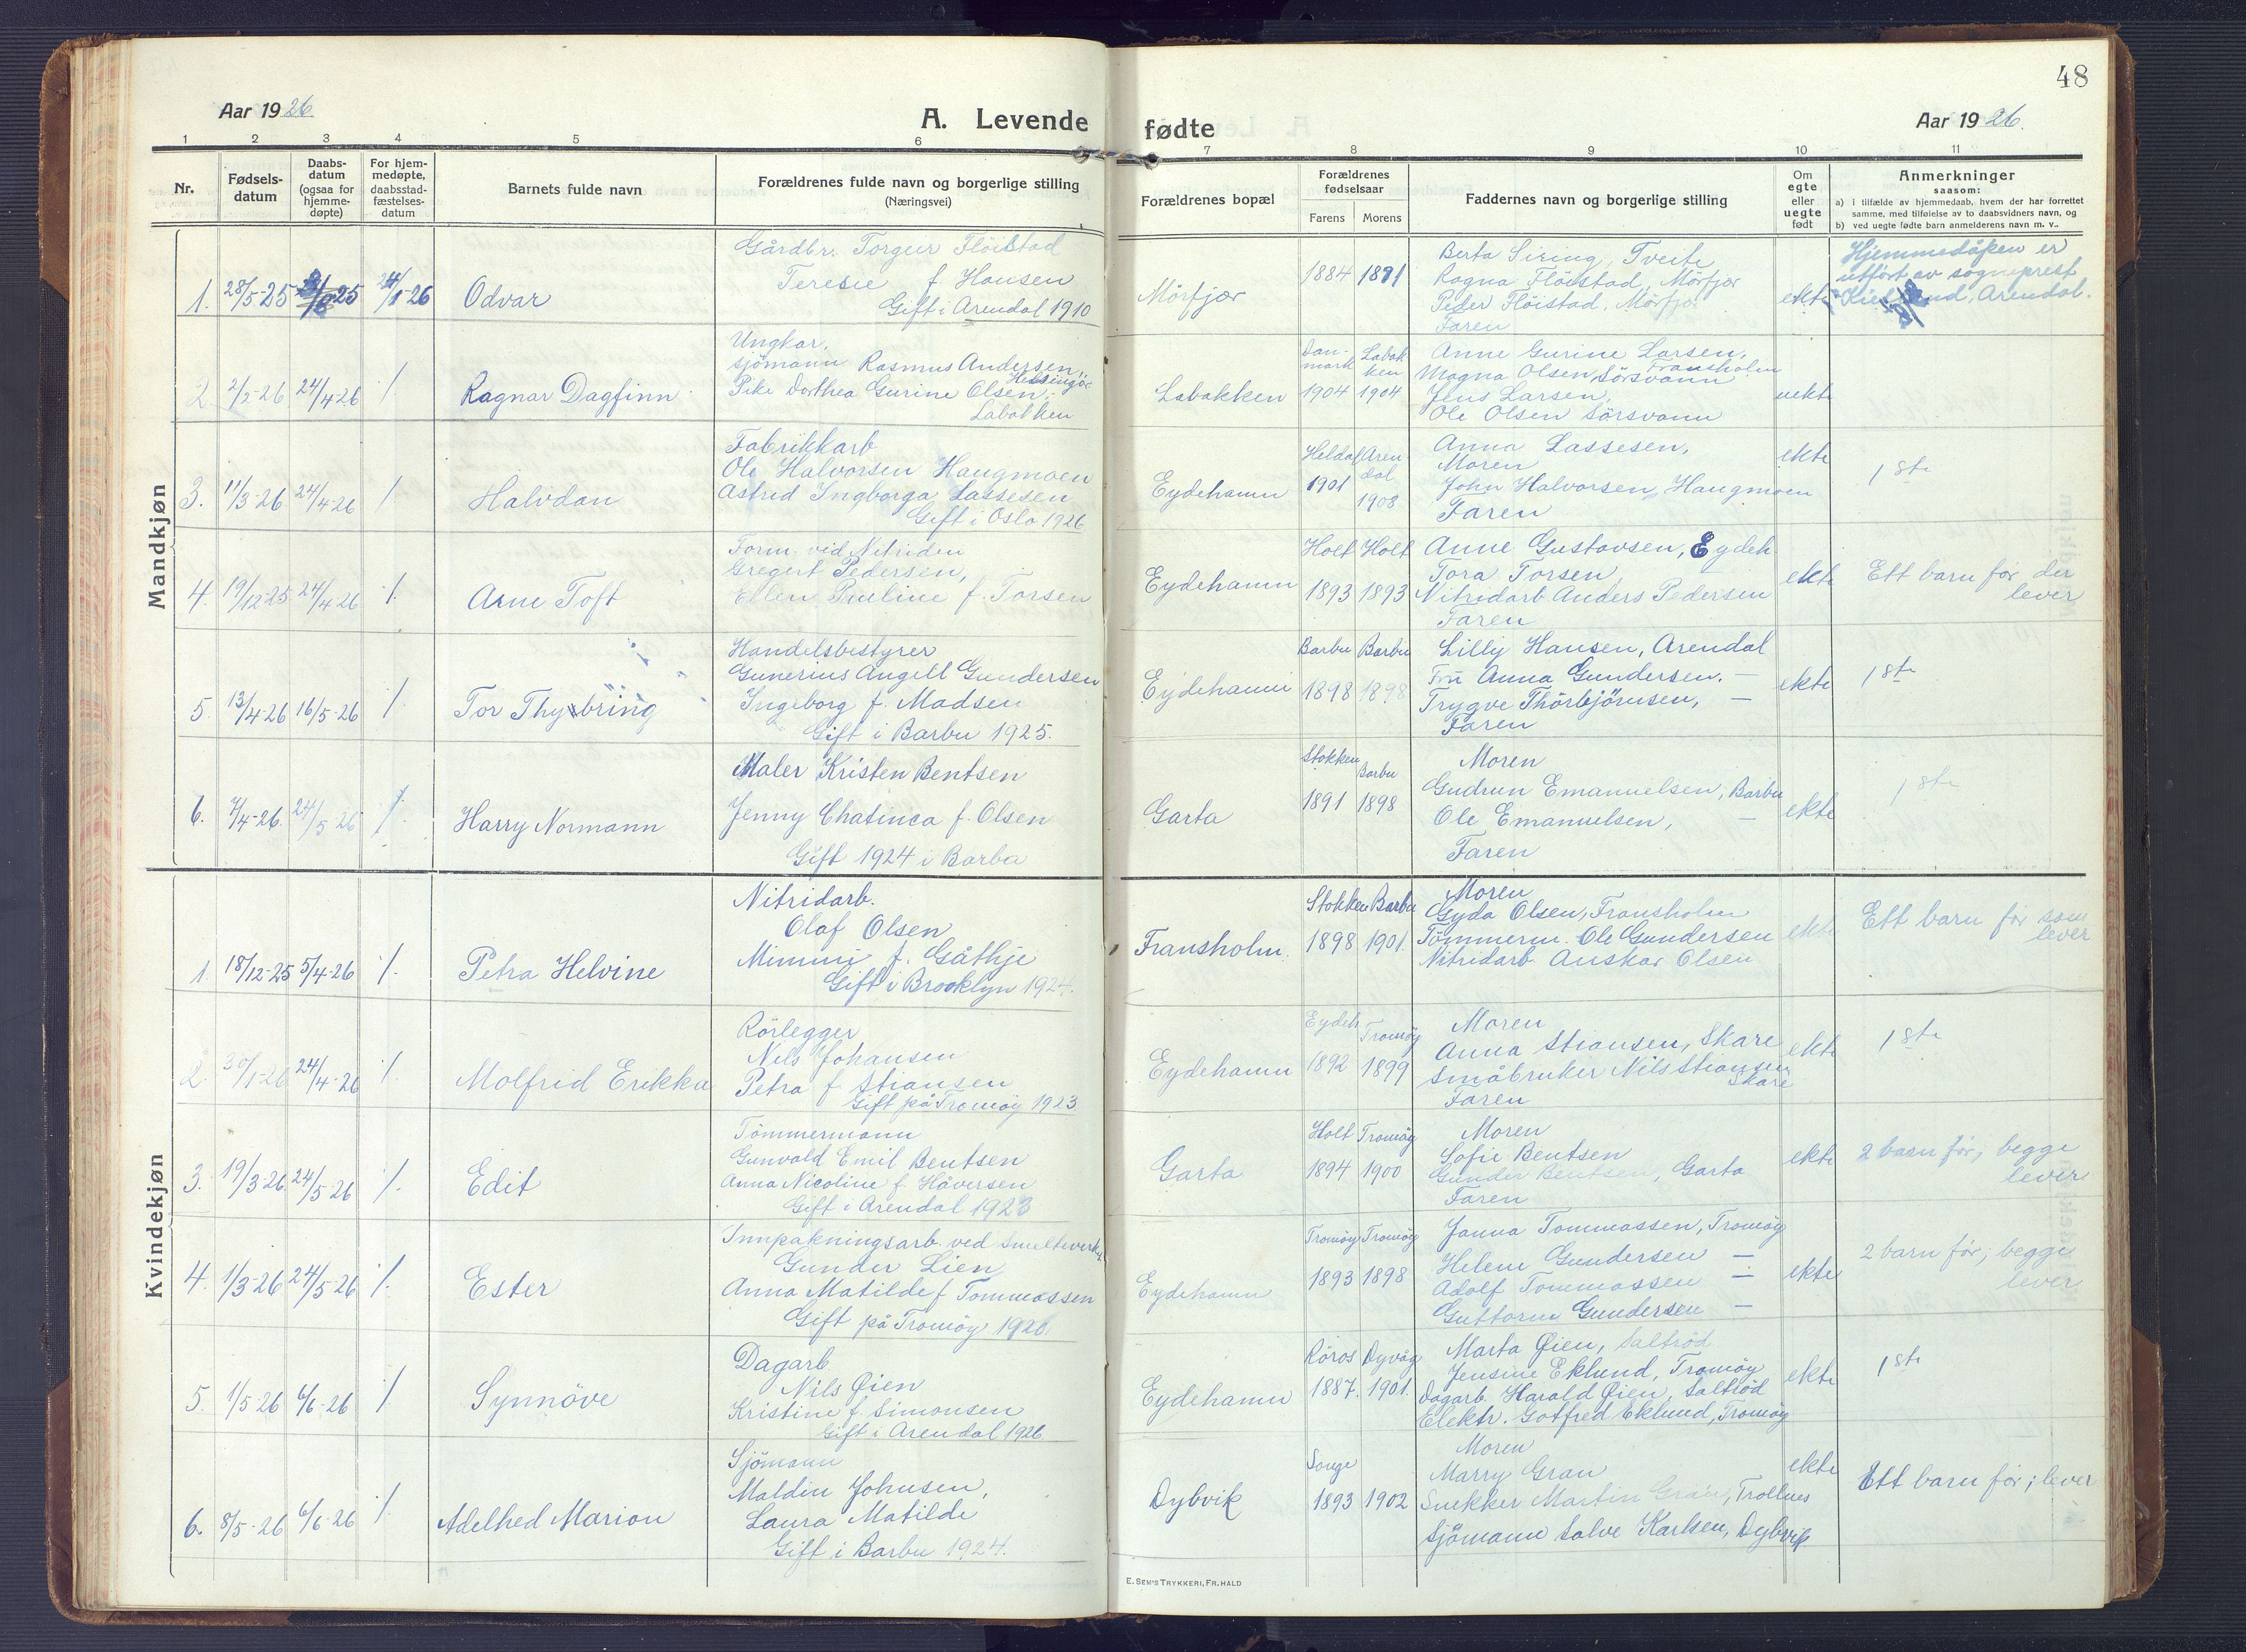 48
Aar 1926.
A. Levende
fødte
Aar 1926.
1 2 3 4 5 6 7 8 9 10 11
Nr.
Fødsels-
datum
Daabs-
datum
(ogsaa for
hjemme-
døpte)
For hjem-
medøpte,
daabsstad-
fæstelses-
datum
Barnets fulde navn
Forældrenes fulde navn og borgerlige stilling
(Næringsvei)
Forældrenes bopæl
Forældrenes
fødselsaar
Farens Morens
Faddernes navn og borgerlige stilling
Om
egte
eller
uegte
født
Anmerkninger
saasom:
a) i tilfælde av hjemmedaab, hvem der har forrettet
samme, med tilføielse av to daabsvidners navn, og
b) ved uegte fødte barn anmelderens navn m. v..
Mandkjøn
1. 28/5-25 25 24/1-26 Odvar
Gårdbr. Torgeir Flöistad
Teresie f. Hansen
Gift i Arendal 1910
Mörfjær
1884 1891
Berta Siring, Tveite
Ragna Flöistad, Mörfjær
Peder Flöistad, Mörfjær
Faren
ekte
Hjemmedåpen er
utfört av sogneprest
Arendal.
2. 2/2-26 24/4-26 /. Ragnar Dagfinn
Ungkar,
sjömann Rasmus Andersen,
Helsingör
Pike Dorthea Gurine Olsen,
Labakken
Labakken
Dan-
mark
1904
Labak
ken
1904
Anne Gurine Larsen,
Fransholm
Magna Olsen, Sörsvann
Jens Larsen,
Ole Olsen Sörsvann
uekte
3. 11/3-26 24/4-26 /. Halvdan
Fabrikkarb
Ole Halvorsen Haugmoen
Astrid Ingborga Lassesen
Gift i Oslo 1926
Eydehamn
1901
Aren
dal
1908
Anna Lassesen,
Moren
John Halvorsen Haugmoen
Faren
ekte
1ste
4. 19/12-25 24/4-26 /. Arne Toft
Form. vid Nitriden
Gregert Pedersen,
Ellen Pauline f. Torsen
Eydehamn
Holt Holt
1893 1893
Anne Gustavsen, Eydeh.
Tora Torsen
Nitridarb Anders Pedersen
Faren
ekte
Ett barn för der
lever
5. 13/4-26 16/5-26 /. Tor Thybring
Handelsbestyrer
Gunerius Angell Gundersen
Ingeborg f. Madsen
Gift i Barbu 1925.
Eydehamn
Barbu Barbu
1898 1898
Lilly Hansen, Arendal
Fru Anna Gundersen. —
Trygve Thorbjörnsen, —
Faren
ekte
1ste
6. 4-26. 24/5-26 /. Harry Normann
Maler Kristen Bentsen
Jenny Chatinca f. Olsen
Gift 1924 i Barbu
Garta
Stokken Barbu
1891 1898
Moren
Gudrun Emanuelsen, Barbu
Ole Emanuelsen, —
Faren
ekte
1ste
Kvindekjøn
1. 18/12-25 5/4-26 /. Petra Helvine
Nitridarb.
Olaf Olsen
Mimmi f. Gåthje
Gift i Brooklyn 1924.
Fransholm.
Stokken Barbu
1898 1901.
Moren
Gyda Olsen, Fransholm
Tömmerm. Ole Gundersen
Nitridarb. Anskar Olsen
ekte
Ett barn för som
lever
2. 30/1-26 24/4-26 /. Molfrid Erikka
Rörlegger
Nils Johansen
Petra f Stiansen
Gift på Tromöy 1923
Eydehamn
Eydeh Tromöy
1892 1899
Moren
Anna Stiansen, Skare
Småbruker Nils Stiansen
Skare
Faren
ekte
1ste
3. 19/3-26 24/5-26 /. Edit
Tömmermann
Gunvald Emil Bentsen
Anna Nicoline f Håversen
Gift i Arendal 1923
Garta
Holt Tromöy
1894 1900
Moren
Sofie Bentsen
Gunder Bentsen, Garta
Faren
ekte
2 barn för, begge
lever
4. 1/3-26 24/5-26 /. Ester
Innpakningsarb. ved Smelteverk.
Gunder Lien
Anna Matilde f Tommassen
Gift på Tromöy 1920.
Eydehamn
Tromöy Tromöy
1893 1898
Janna Tommassen, Tromöy
Helene Gundersen —
Adolf Tommassen —
Guttorm Gundersen —
ekte
2 barn för; begge
lever
5. 1/5-26 6/6-26 /. Synnöve
Dagarb
Nils Øien
Kristine f. Simonsen
Gift i Arendal 1926
Eydehamn
Röros Dyvåg
1887. 1901.
Marta Øien, Saltröd
Jensine Eklund, Tromöy
Dagarb. Harald Øien, Saltröd
Elektr. Gotfred Eklund, Tromöy
ekte
1ste
6. 8/5-26 6/6-26 /. Adelhed Marion
Sjömann
Maldin Johnsen,
Laura Matilde
Gift i Barbu 1924.
Dybvik
Songe
1893 1902
Moren
Marry Gran
Snekker Martin Gran, Trollnes
Sjömann Salve Karlsen, Dybvik
ekte
Ett barn för; lever
E. Sem's Trykkeri, Fr.hald